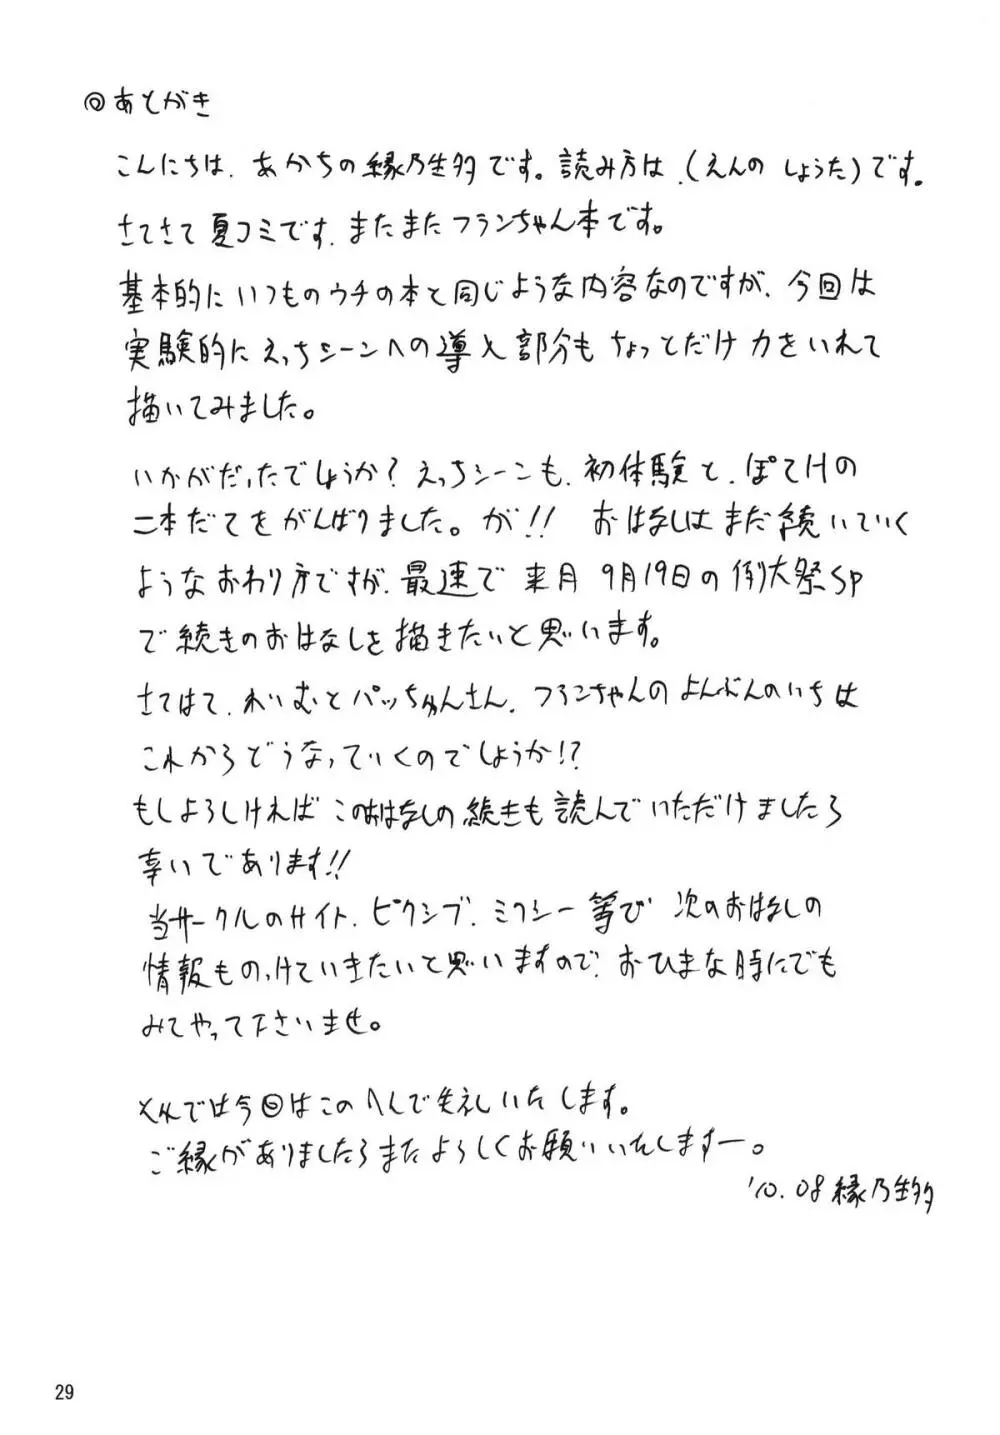 ◎あとがき
こんにちは、あかちの縁乃生多です。読み方は、(えんの しょうた)です。
さてさて夏コミです、またまたフランちゃん本です。
基本的にいつものウチの本と同じような内容なのですが、今回は
実験的にえっちシーンへの導入部分もちょっとだけ力をいれて
描いてみました。
いかがだったでしょうか?えっちシーンも、初体験と、ぽてHの
二本だてをがんばりました。が!! おはなしはまだ続いていく
ようなおわり方ですが、最速で来月9月19日の例大祭SP
で続きのおはなしを描きたいと思います。
さてはて、れいむとパッちゅんさん、フランちゃんのよんぶんのいちは
これからどうなっていくのでしょうか!?
もしよろしければこのおはなしの続きも読んでいただけましたら
幸いであります!!
当サークルのサイト、ピクシブ、ミクシー等で次のおはなしの
情報ものっけていきたいと思いますので、おひまな時にでも
みてやって下さいませ。
それでは今回はこのへんで失礼いたします。
ご縁がありましたらまたよろしくお願いいたしますー。
'10.08縁乃生多
29